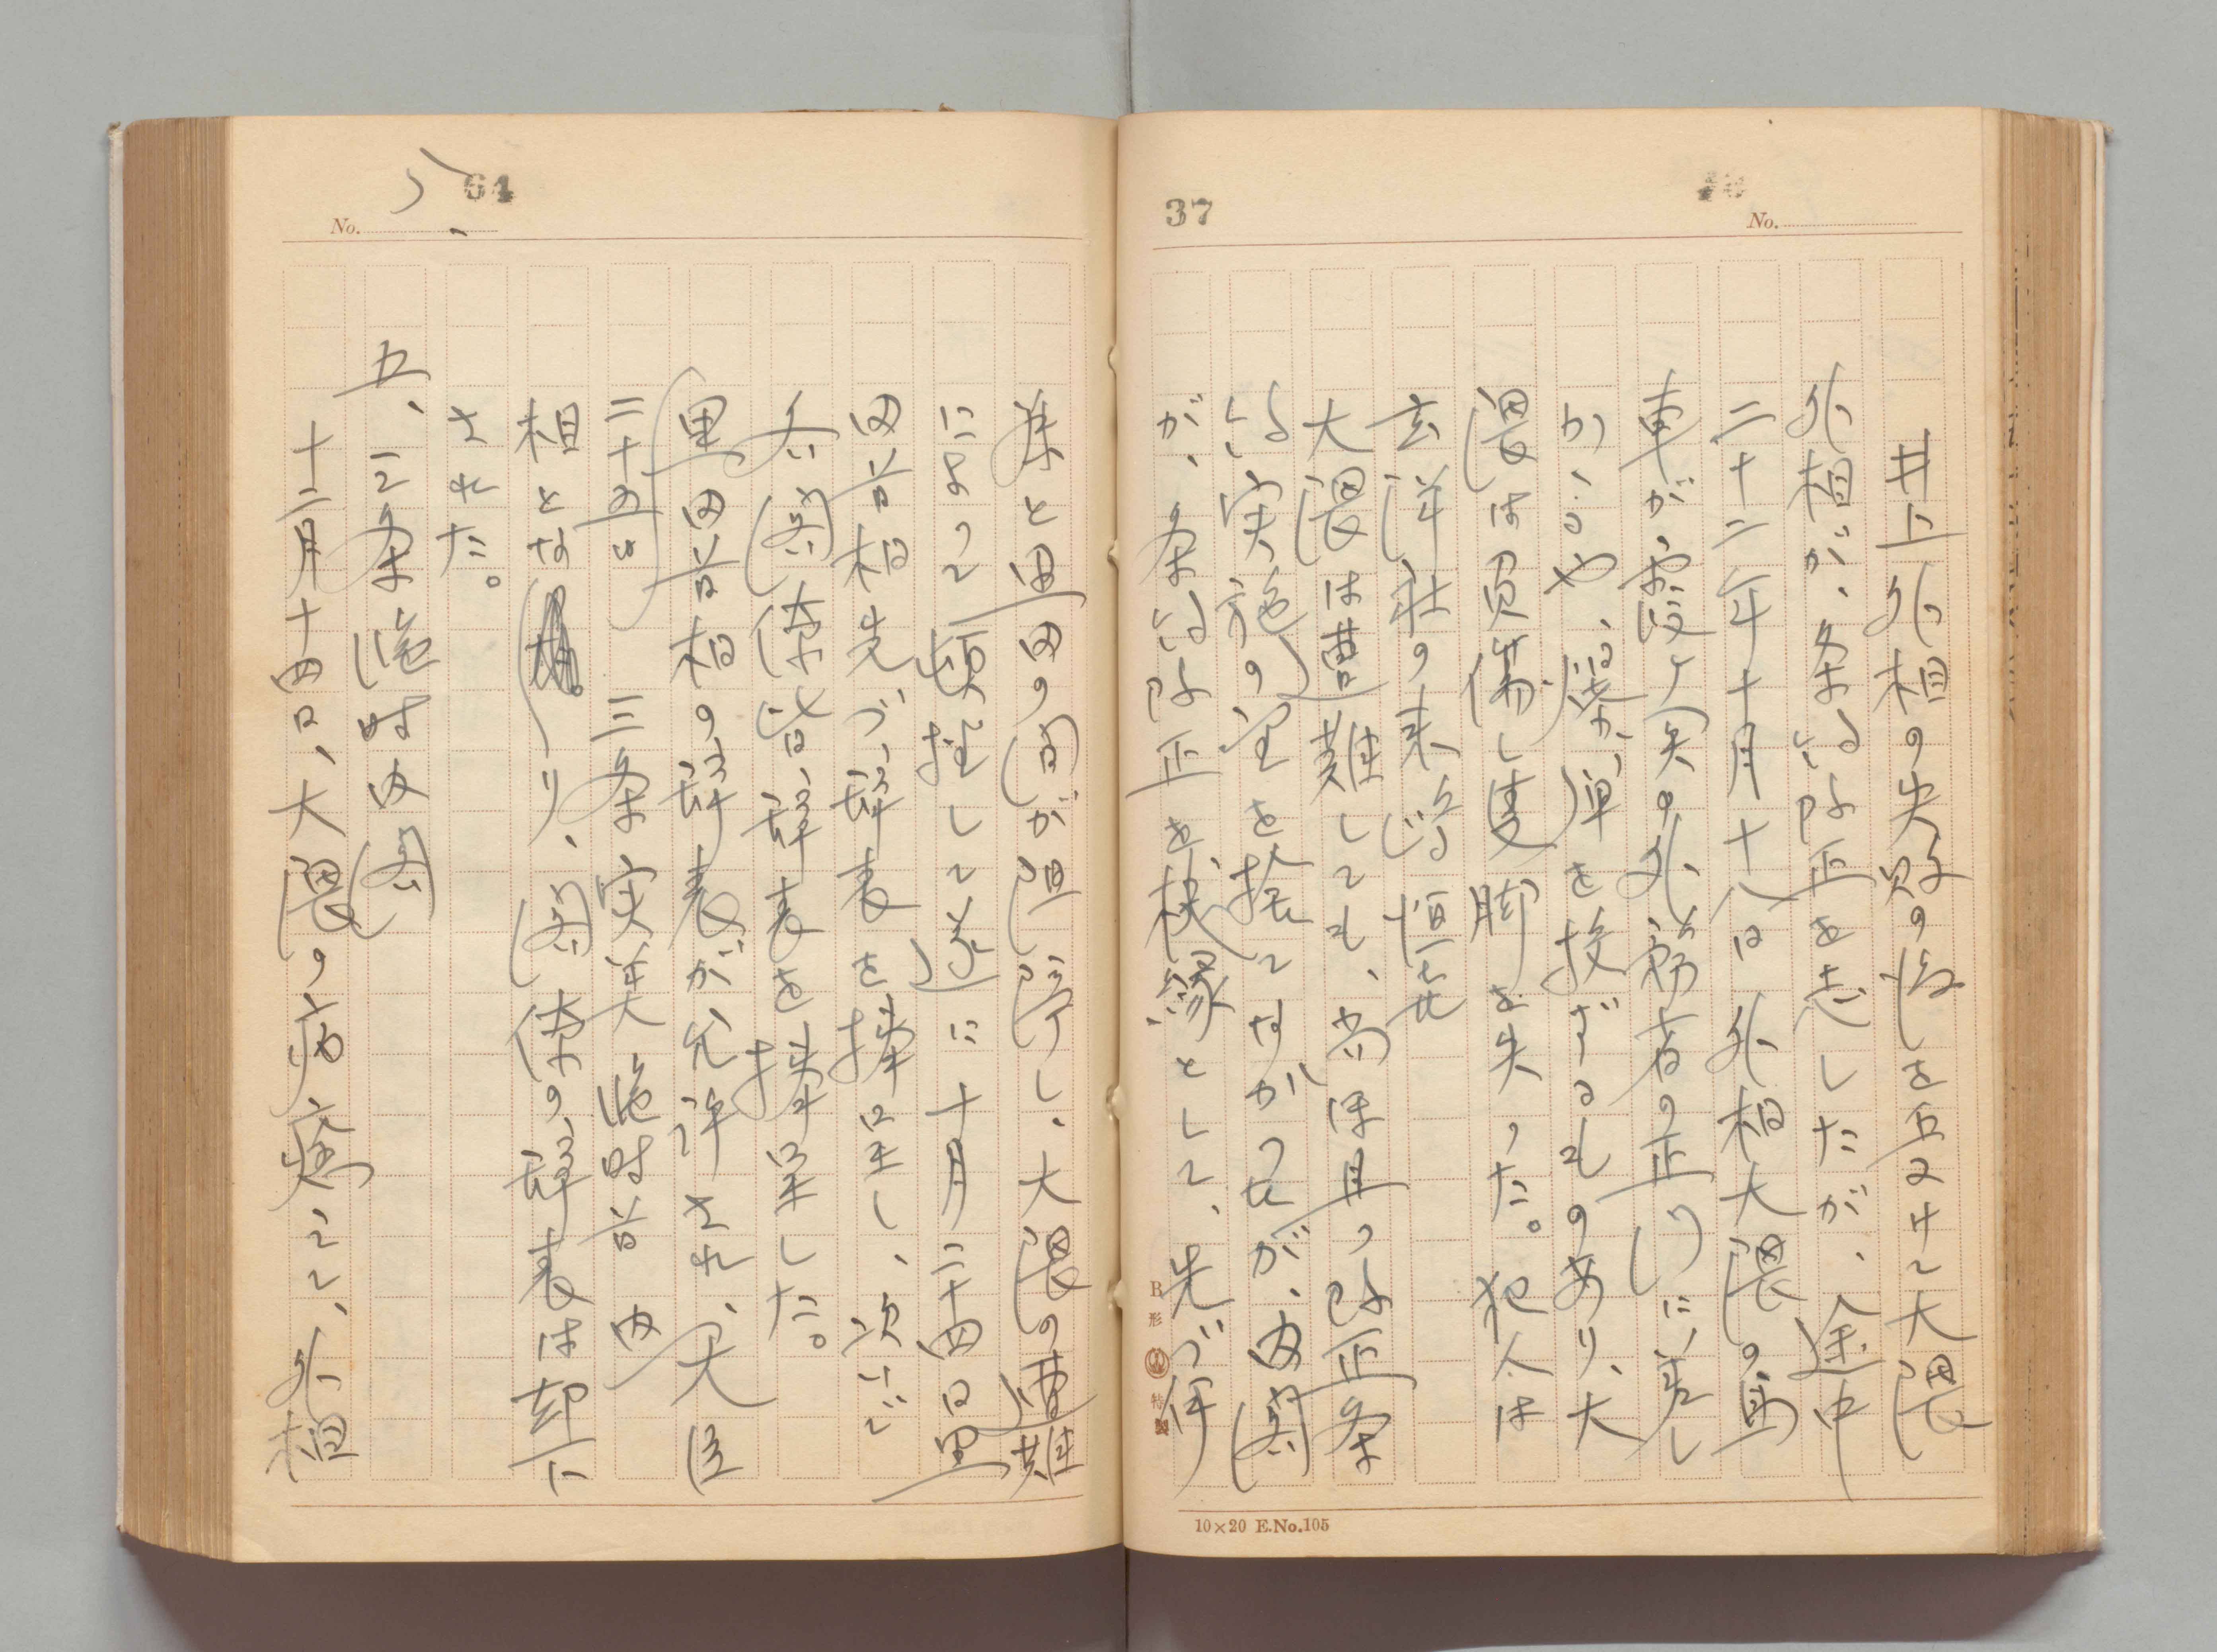 37
No.
井上外相の失敗の後を受けて大隈
外相が、条約改正を志したが、途中
二十二年十月十八日外相大隈の馬
車が霞ヶ関の外務省の正門に差し
かゝるや、爆弾を投ずるものあり、大
隈は負傷し隻脚を失った。犯人は
玄洋社の来島恒喜
大隈は遭難しても、尚ほ且つ改正条
約実施の望を捨てなかったが、内閣
が、条約改正を機縁として、先づ伊
B形 特製
10×20 E.No.105
64
No.
藤と黒田の間が阻隔し、大隈の遭難
によって頓挫して遂に十月二十四日黒
田首相先づ辞表を捧呈し、次いで
各閣僚皆辞表を捧呈した。
黒田首相の辞表が允許され、内大臣
二十五日 三条実美臨時首 内
相となり、閣僚の辞表は却下
された。
五、三条臨時内閣
十二月十四日、大隈の病癒えて、外相